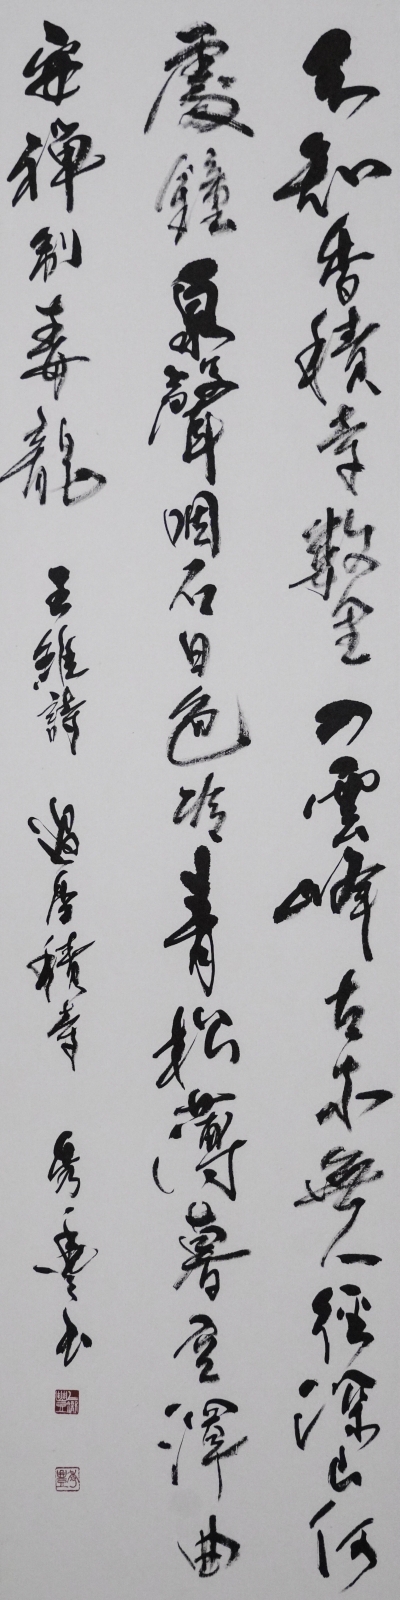 不知香積寺數里入雲峰古木無人徑深山何
處鐘泉聲咽石日色冷青松薄暮空潭曲
安禪制毒龍 王維詩 過香積寺 秀書